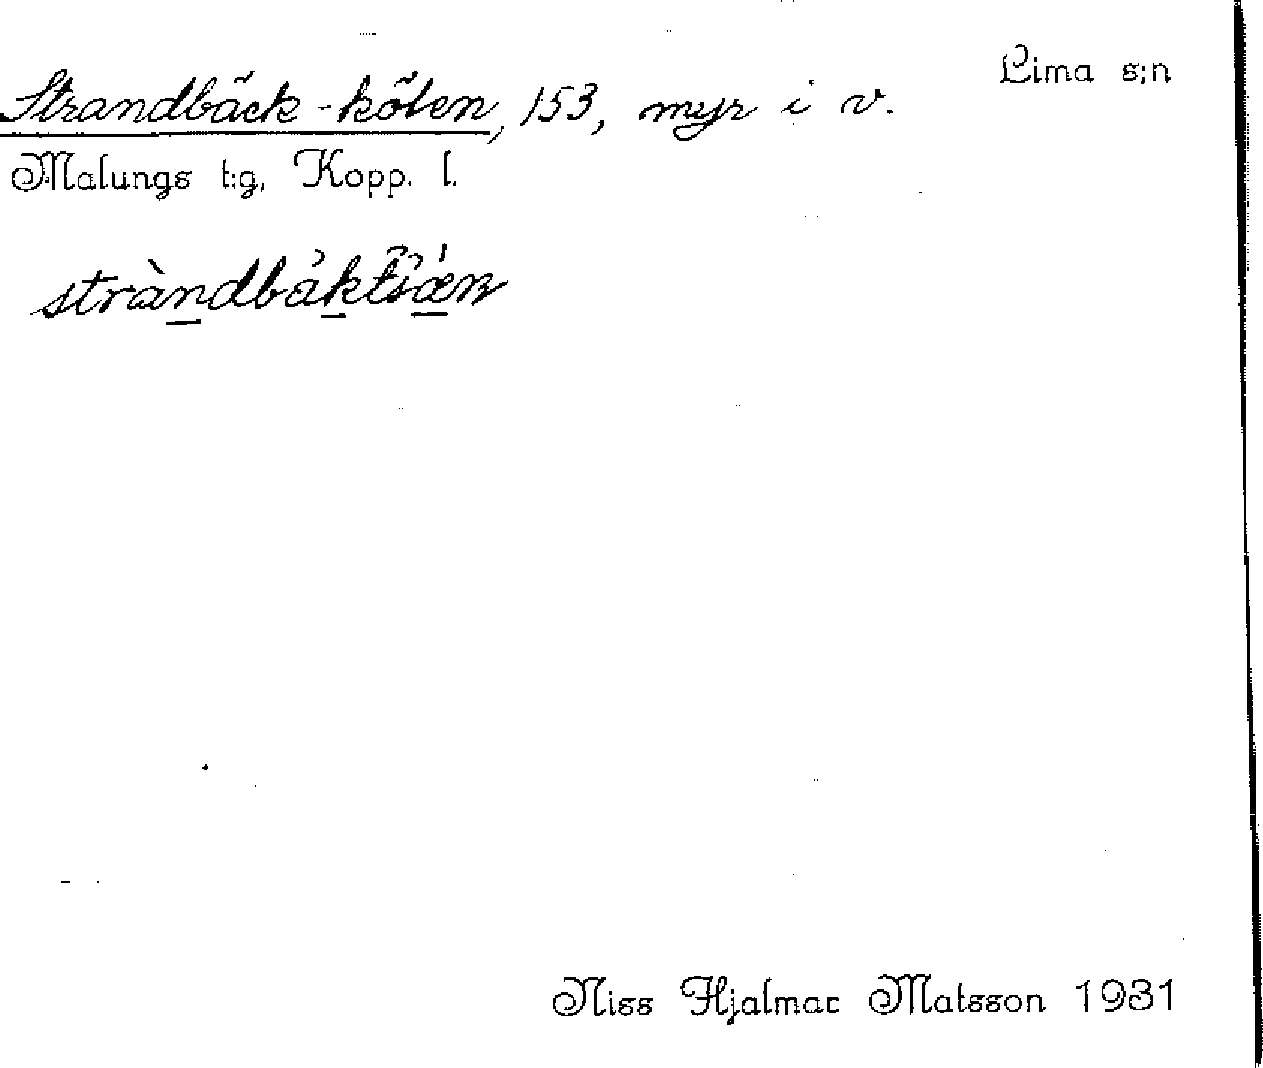 Strandbäck-kölen, 153, myr i v.
Lima s:n
Malungs t:g, Kopp. l.
Niss Hjalmar Matsson 1931